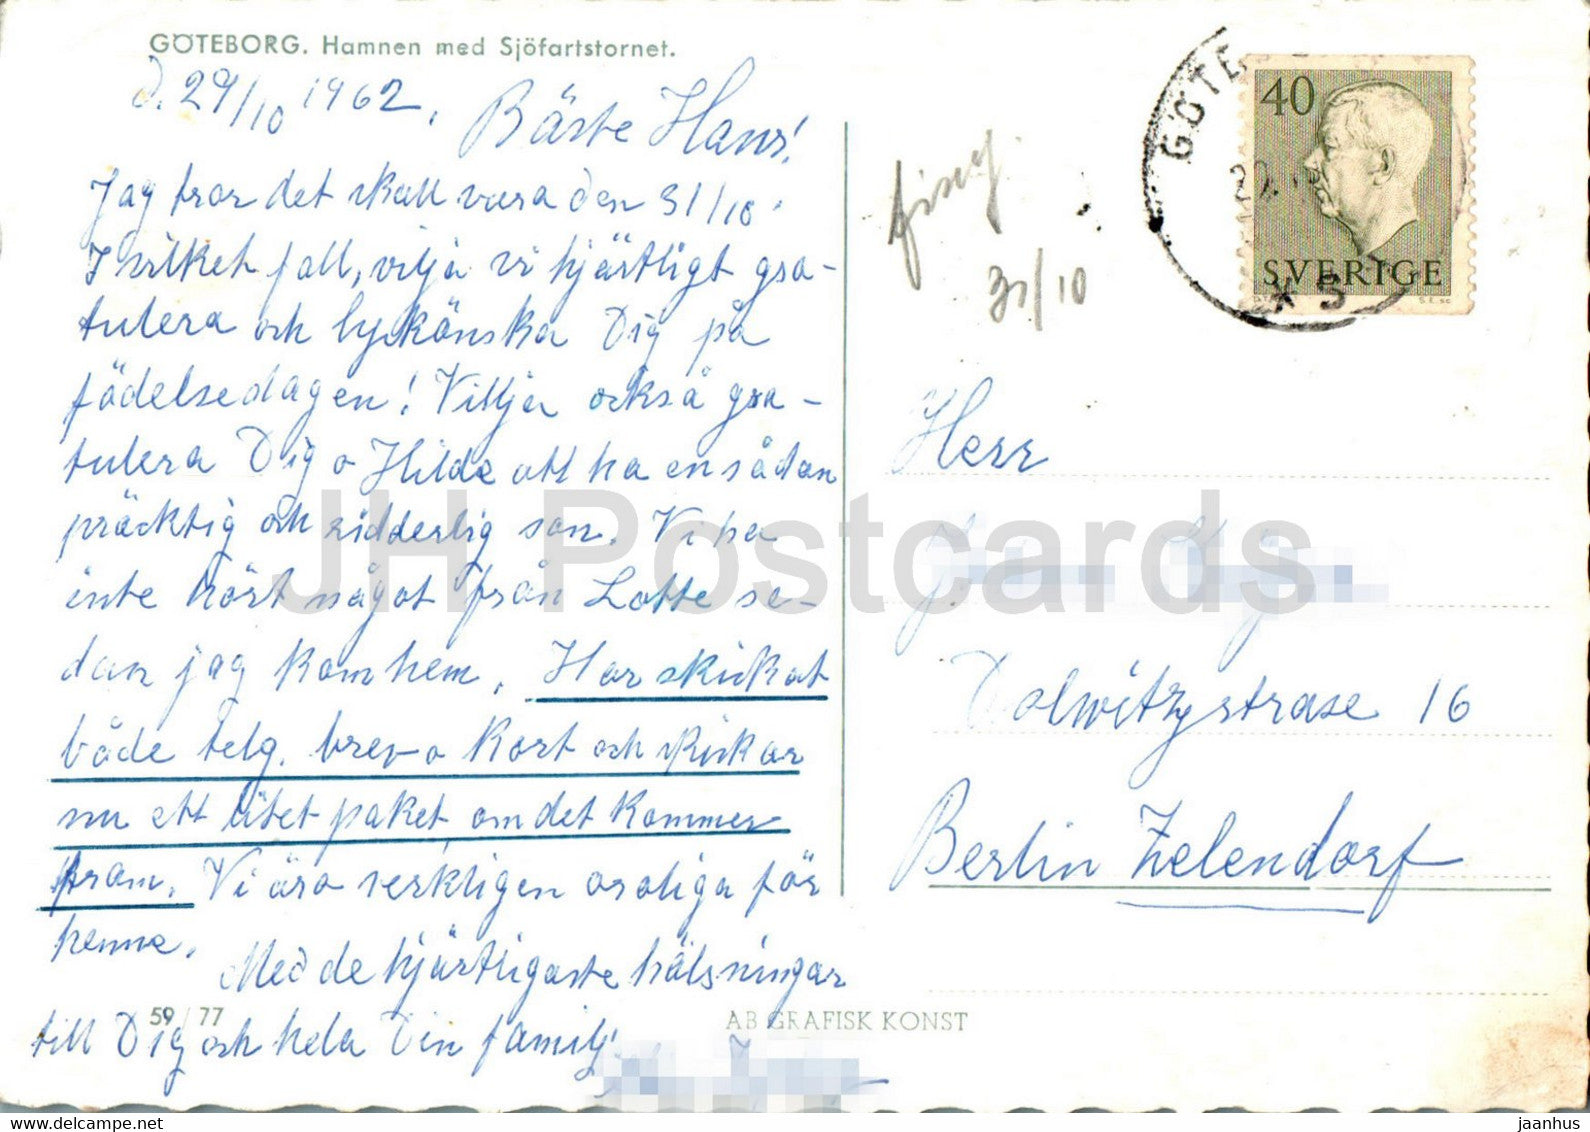 GÖTEBORG. Hamnen med Sjöfartstornet.
d. 29/10 1962. Bäste Hans!
Jag tror det skall vara den 31/10.
I vilket fall, vilja vi hjärtligt gra-
tulera och lyckönska Dig på
födelsedagen! Vilja också gra-
tulera Dig o Hilde att ha en sådan
präcktig och ridderlig son. Vi ha
inte hört något från Lotte se-
dan jag kom hem. Har skickat
både telg. brev o kort och skickar
nu ett litet paket om det kommer
fram. Vi äro verkligen oroliga för
henne.
Med de hjärtligaste hälsningar
till Dig och hela Din familj
59/77
AB GRAFISK KONST
31/10
GÖTE
40
SVERIGE
S.E. sc
Herr
Dolwitzystrase 16
Berlin Zelendorf
JH Postcards
www.delcampe.net
jaanhus